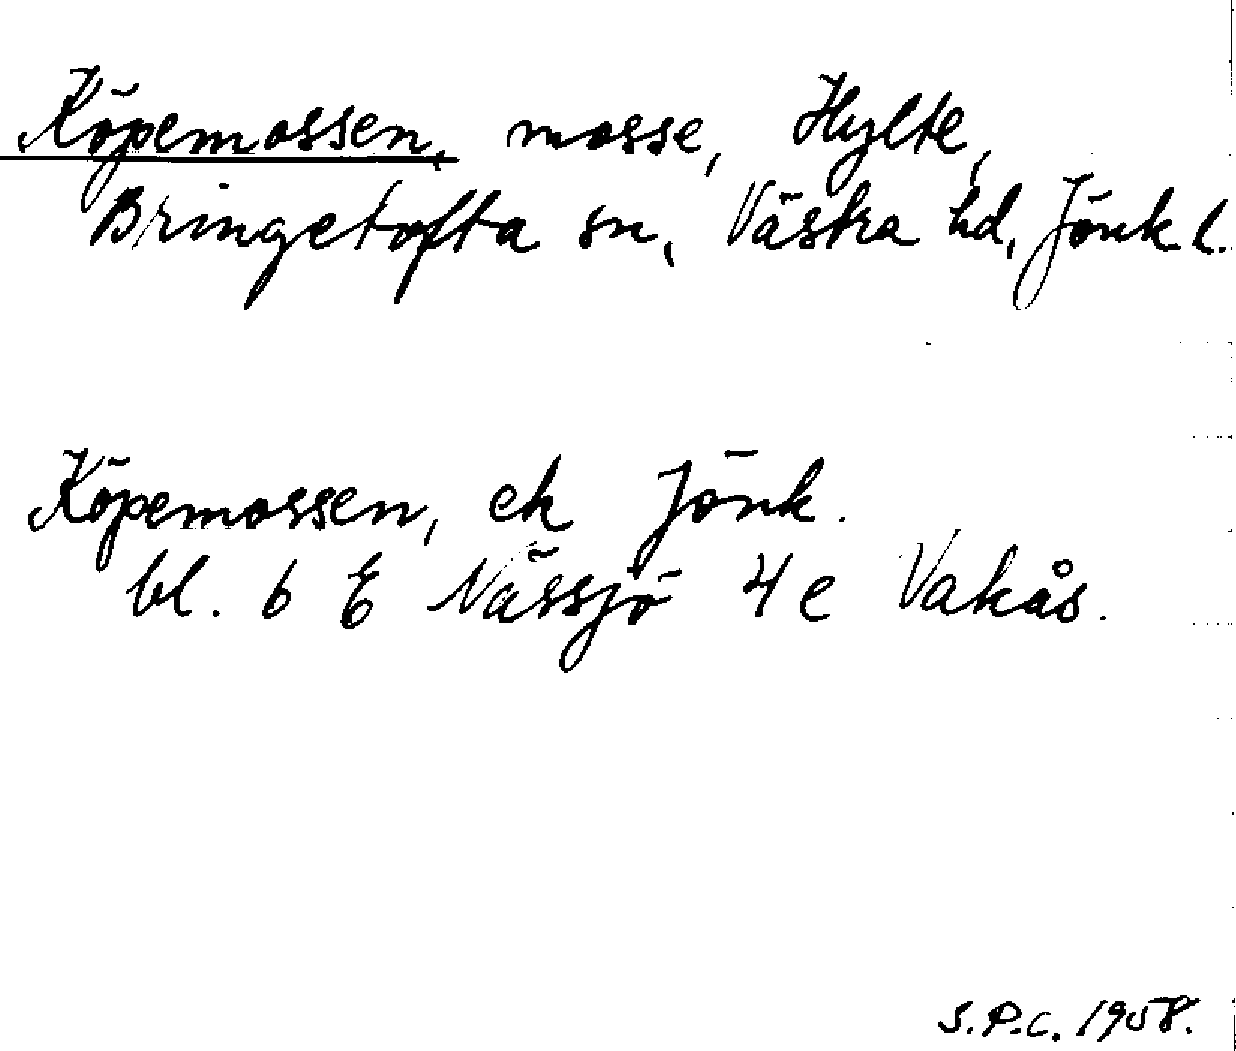 Köpemossen, mosse, Hylte,
Bringetofta sn, Västra hd, Jönk l.
Köpemossen, ek Jönk.
bl. 6 E Nässjö 4 e Vakås.
S.P.C. 1958.